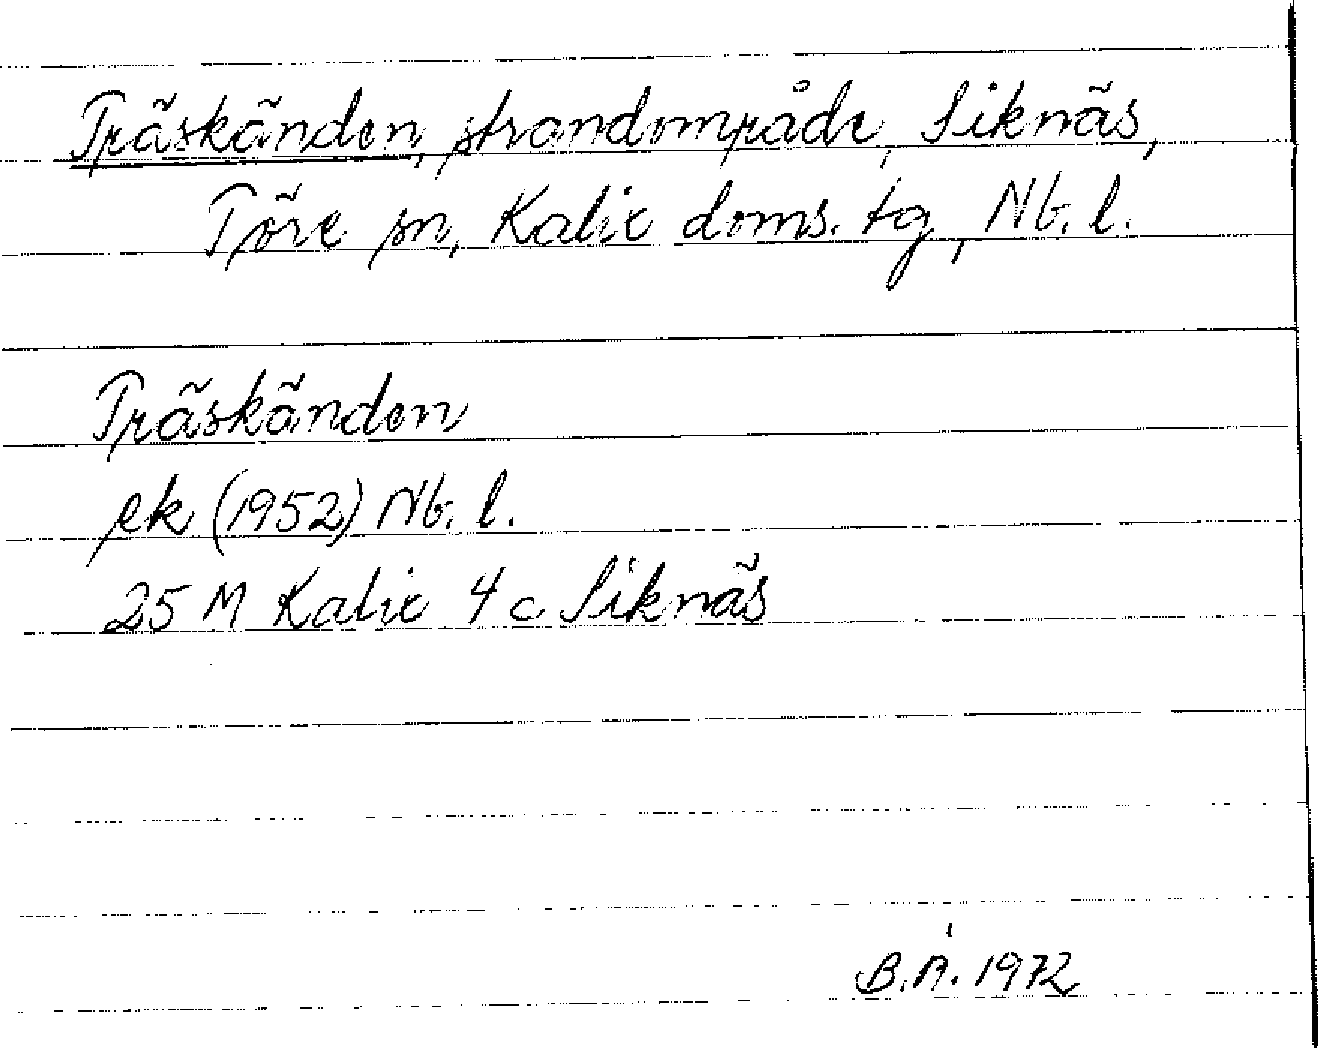 Träskänden, strandområde, Siknäs,
Töre sn, Kalix doms. tg, Nb. l.
Träskänden
ek (1952) Nb. l.
25 M Kalix 4 c Siknäs
B.A. 1972